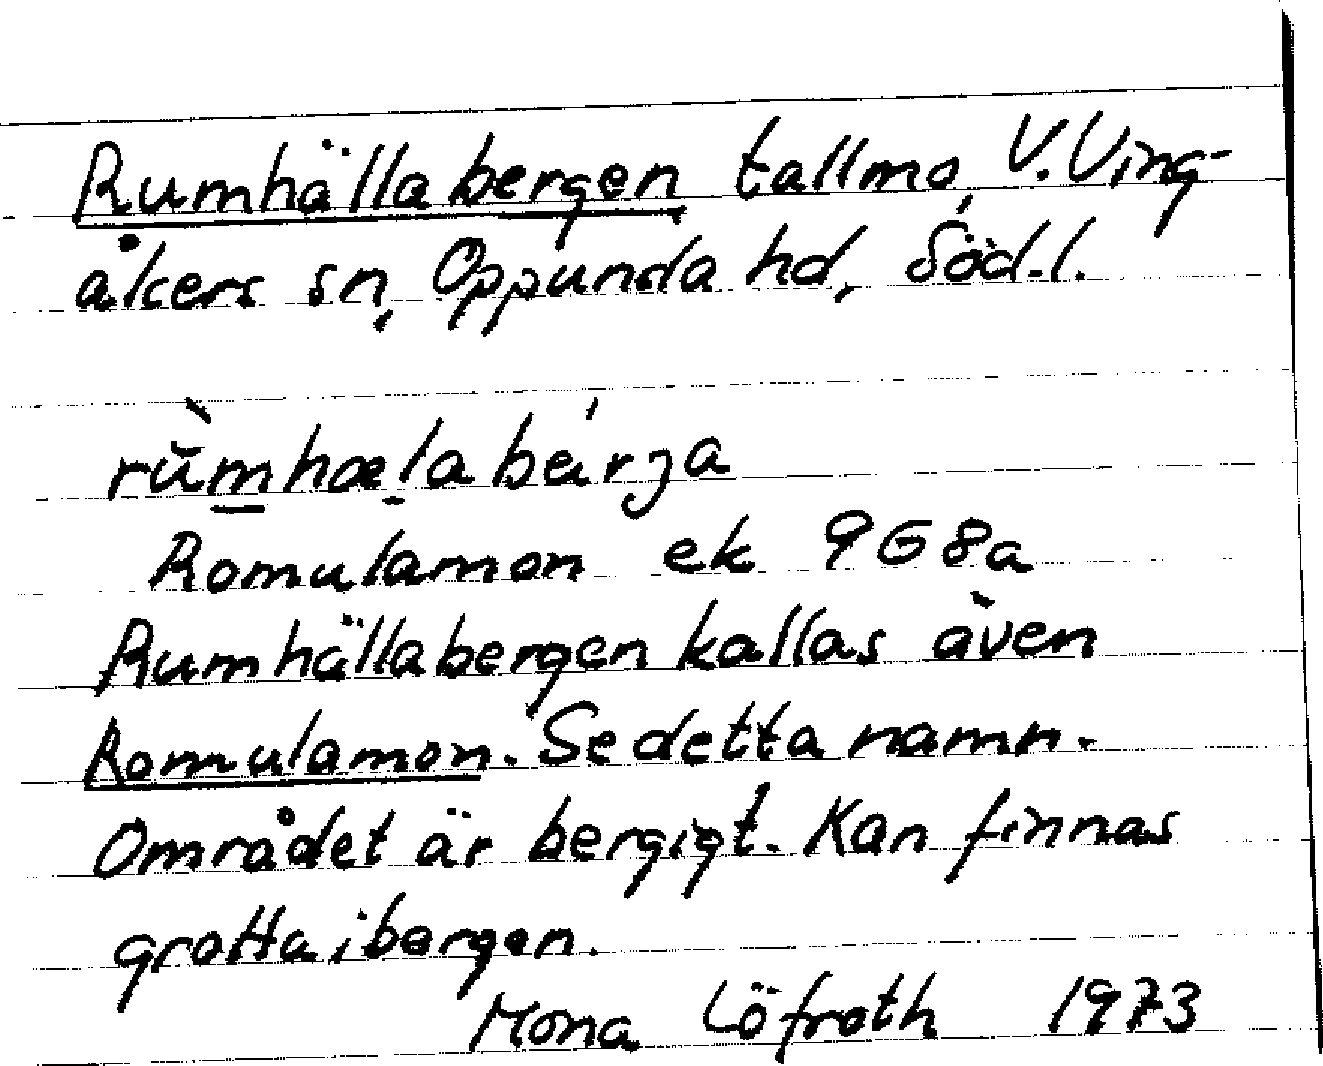 Rumhällabergen tallmo, V. Ving-
åkers sn, Oppunda hd, Söd.l.
rùmhæla bä́rja
Romulamon ek 9G8a
Rumhällabergen kallas även
Romulamon. Se detta namn.
Området är bergigt. Kan finnas
grotta i bergen.
Mona Löfroth 1973